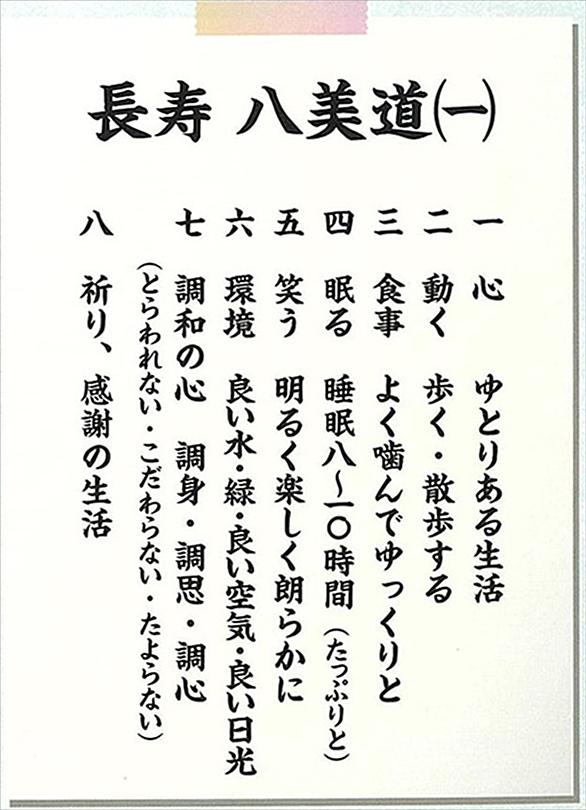 長寿 八美道㈠
一 心 ゆとりある生活
二 動く 歩く・散歩する
三 食事 よく噛んでゆっくりと
四 眠る 睡眠八〜一〇時間（たっぷりと）
五 笑う 明るく楽しく朗らかに
六 環境 良い水・緑・良い空気・良い日光
七 調和の心 調身・調思・調心
（とらわれない・こだわらない・たよらない）
八 祈り、感謝の生活